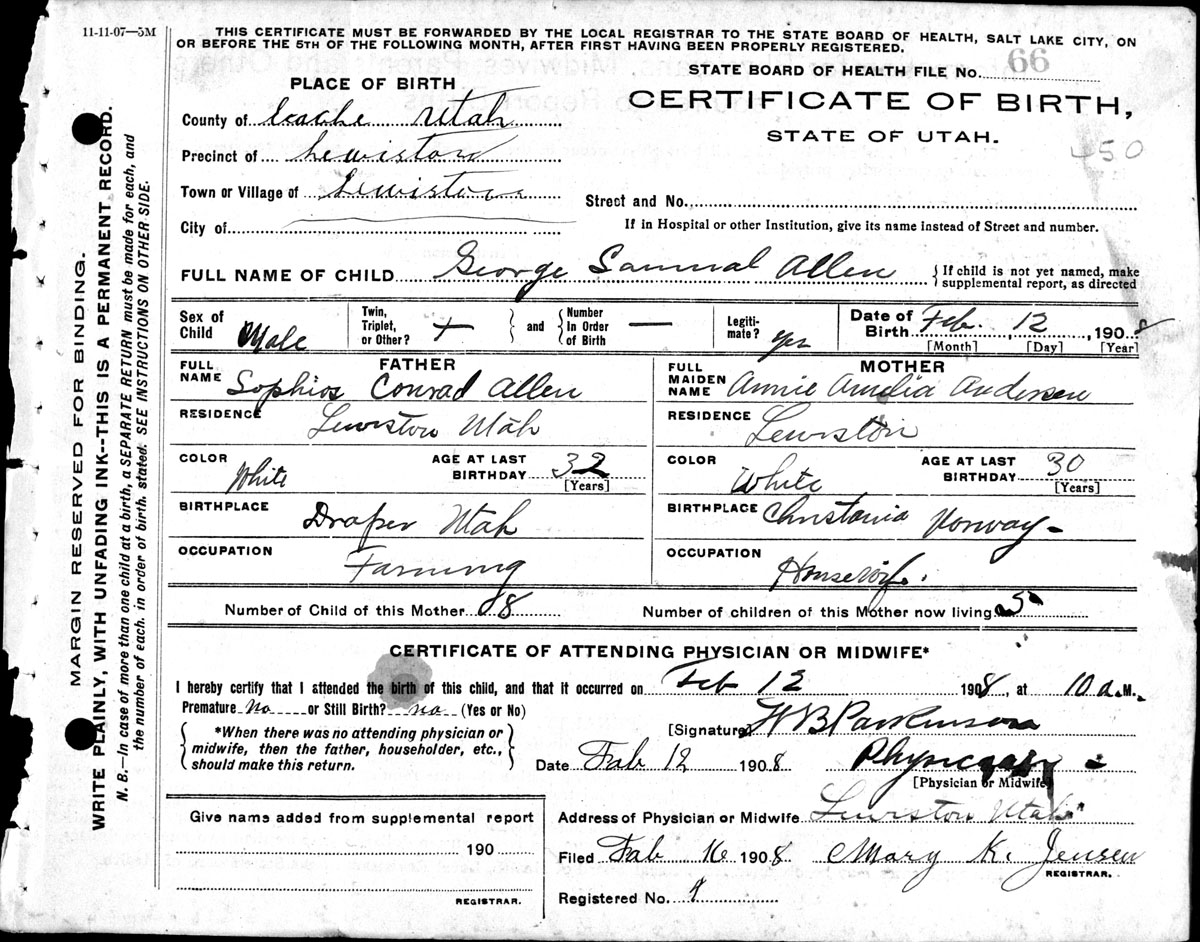 11-11-07—5M
THIS CERTIFICATE MUST BE FORWARDED BY THE LOCAL REGISTRAR TO THE STATE BOARD OF HEALTH, SALT LAKE CITY, ON
OR BEFORE THE 5TH OF THE FOLLOWING MONTH, AFTER FIRST HAVING BEEN PROPERLY REGISTERED.
STATE BOARD OF HEALTH FILE No. 66
PLACE OF BIRTH
CERTIFICATE OF BIRTH,
STATE OF UTAH.
450
County of Cache Utah
Precinct of Lewiston
Town or Village of Lewiston
Street and No.
City of
If in Hospital or other Institution, give its name instead of Street and number.
FULL NAME OF CHILD George Samual Allen { If child is not yet named, make supplemental report, as directed
Sex of Child Male
Twin, Triplet, or Other? +
and
Number In Order of Birth —
Legitimate? yes
Date of Birth Feb. 12, 1908
[Month] [Day] [Year]
FATHER
MOTHER
FULL NAME Sophios Conrad Allen
FULL MAIDEN NAME Annie Amelia Andersen
RESIDENCE Lewiston Utah
RESIDENCE Lewiston
COLOR White AGE AT LAST BIRTHDAY 32 [Years]
COLOR White AGE AT LAST BIRTHDAY 30 [Years]
BIRTHPLACE Draper Utah
BIRTHPLACE Christania Norway-
OCCUPATION Farming
OCCUPATION Housewife.
Number of Child of this Mother 8
Number of children of this Mother now living 5
CERTIFICATE OF ATTENDING PHYSICIAN OR MIDWIFE*
I hereby certify that I attended the birth of this child, and that it occurred on Feb 12 1908, at 10 a.M.
Premature No or Still Birth? no (Yes or No)
[Signature] W B Parkinson
*When there was no attending physician or
midwife, then the father, householder, etc.,
should make this return.
Date Fab 12 1908 Physician
[Physician or Midwife]
Give name added from supplemental report
190
REGISTRAR.
Address of Physician or Midwife Lewiston Utah
Filed Fab 16 1908 Mary K. Jensen
REGISTRAR.
Registered No.
MARGIN RESERVED FOR BINDING.
WRITE PLAINLY, WITH UNFADING INK--THIS IS A PERMANENT RECORD.
N. B.—In case of more than one child at a birth, a SEPARATE RETURN must be made for each, and
the number of each, in order of birth, stated. SEE INSTRUCTIONS ON OTHER SIDE.